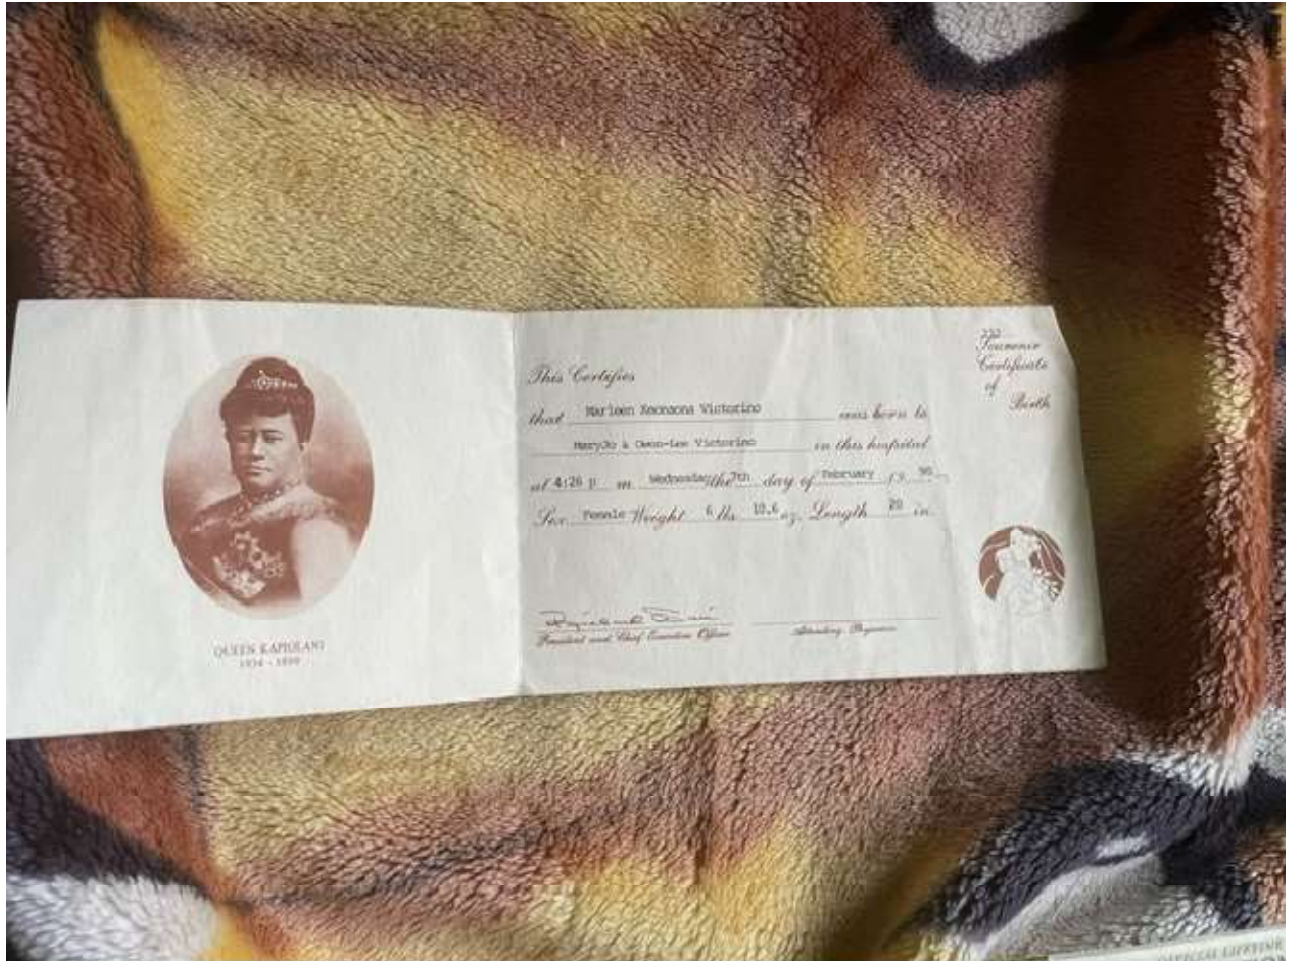 QUEEN KAPIOLANI
1834 - 1899
Souvenir
Certificate
of
Birth
This Certifies
that Marleen Victorino was born to
MaryJo & Victorino in this hospital
at 4:26 p m. Wednesday the 7th day of February 19
Sex Female Weight 6 lbs 10.6 oz. Length 20 in.
President and Chief Executive Officer
Attending Physician
OFFICIAL LIFETIME